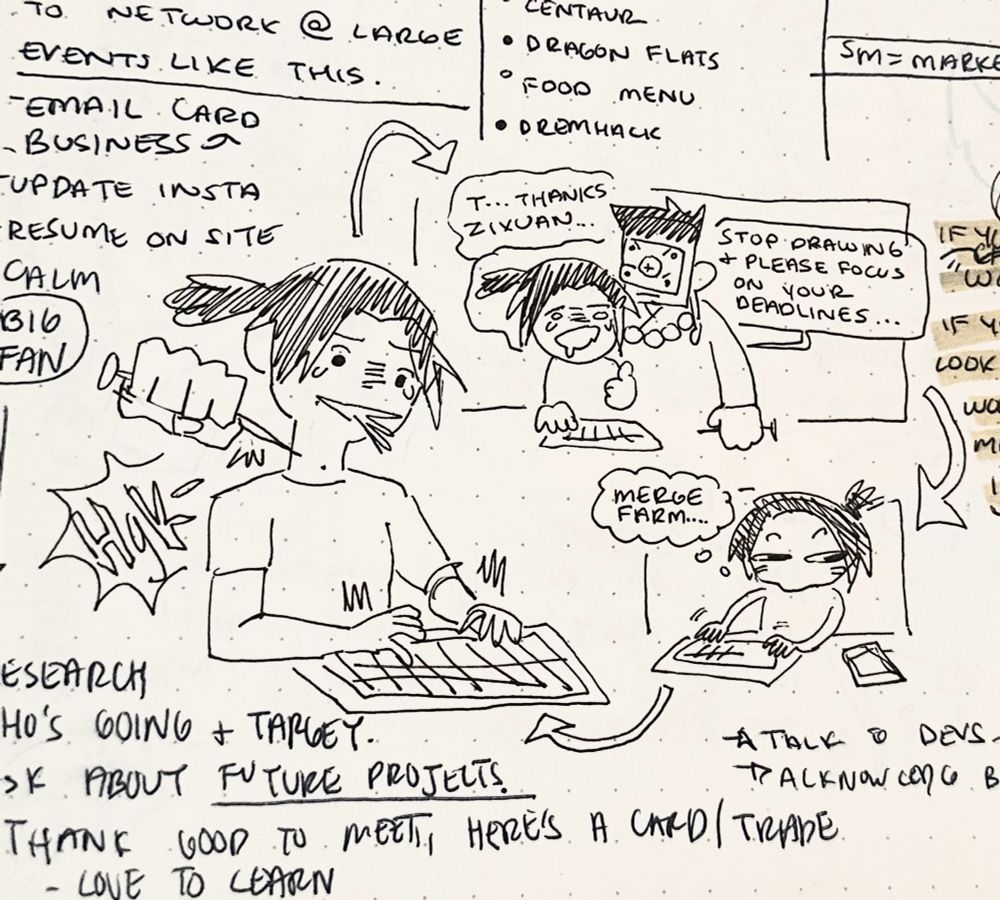 TO NETWORK @ LARGE
EVENTS LIKE THIS.
-EMAIL CARD
- BUSINESS
UPDATE INSTA
RESUME ON SITE
CALM
BIG
FAN
CENTAUR
• DRAGON FLATS
° FOOD MENU
• DREMHACK
SM = MARKE
T... THANKS
ZIXUAN...
STOP DRAWING
+ PLEASE FOCUS
ON YOUR
DEADLINES...
MERGE
FARM....
IF Y
IF Y
LOOK
ESEARCH
HO'S GOING + TARGET.
K ABOUT FUTURE PROJECTS
THANK GOOD TO MEET, HERE'S A CARD/TRADE
- LOVE TO LEARN
TALK DEVS